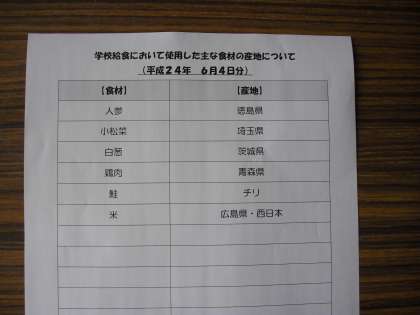 学校給食において使用した主な食材の産地について
（平成２４年　６月４日分）
【食材】 【産地】
人参 徳島県
小松菜 埼玉県
白葱 茨城県
鶏肉 青森県
鮭 チリ
米 広島県・西日本